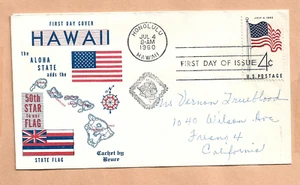 FIRST DAY COVER
HAWAII
the
ALOHA
STATE
adds the
50th
STAR
to our
FLAG
STATE FLAG
Cachet by
Bruce
HONOLULU
JUL 4
2-AM
1960
HAWAII
FIRST DAY OF ISSUE
JULY 4, 1960
4¢
U.S. POSTAGE
Vernon Trueblood
7040 Wilson Ave
Fresno 4
California